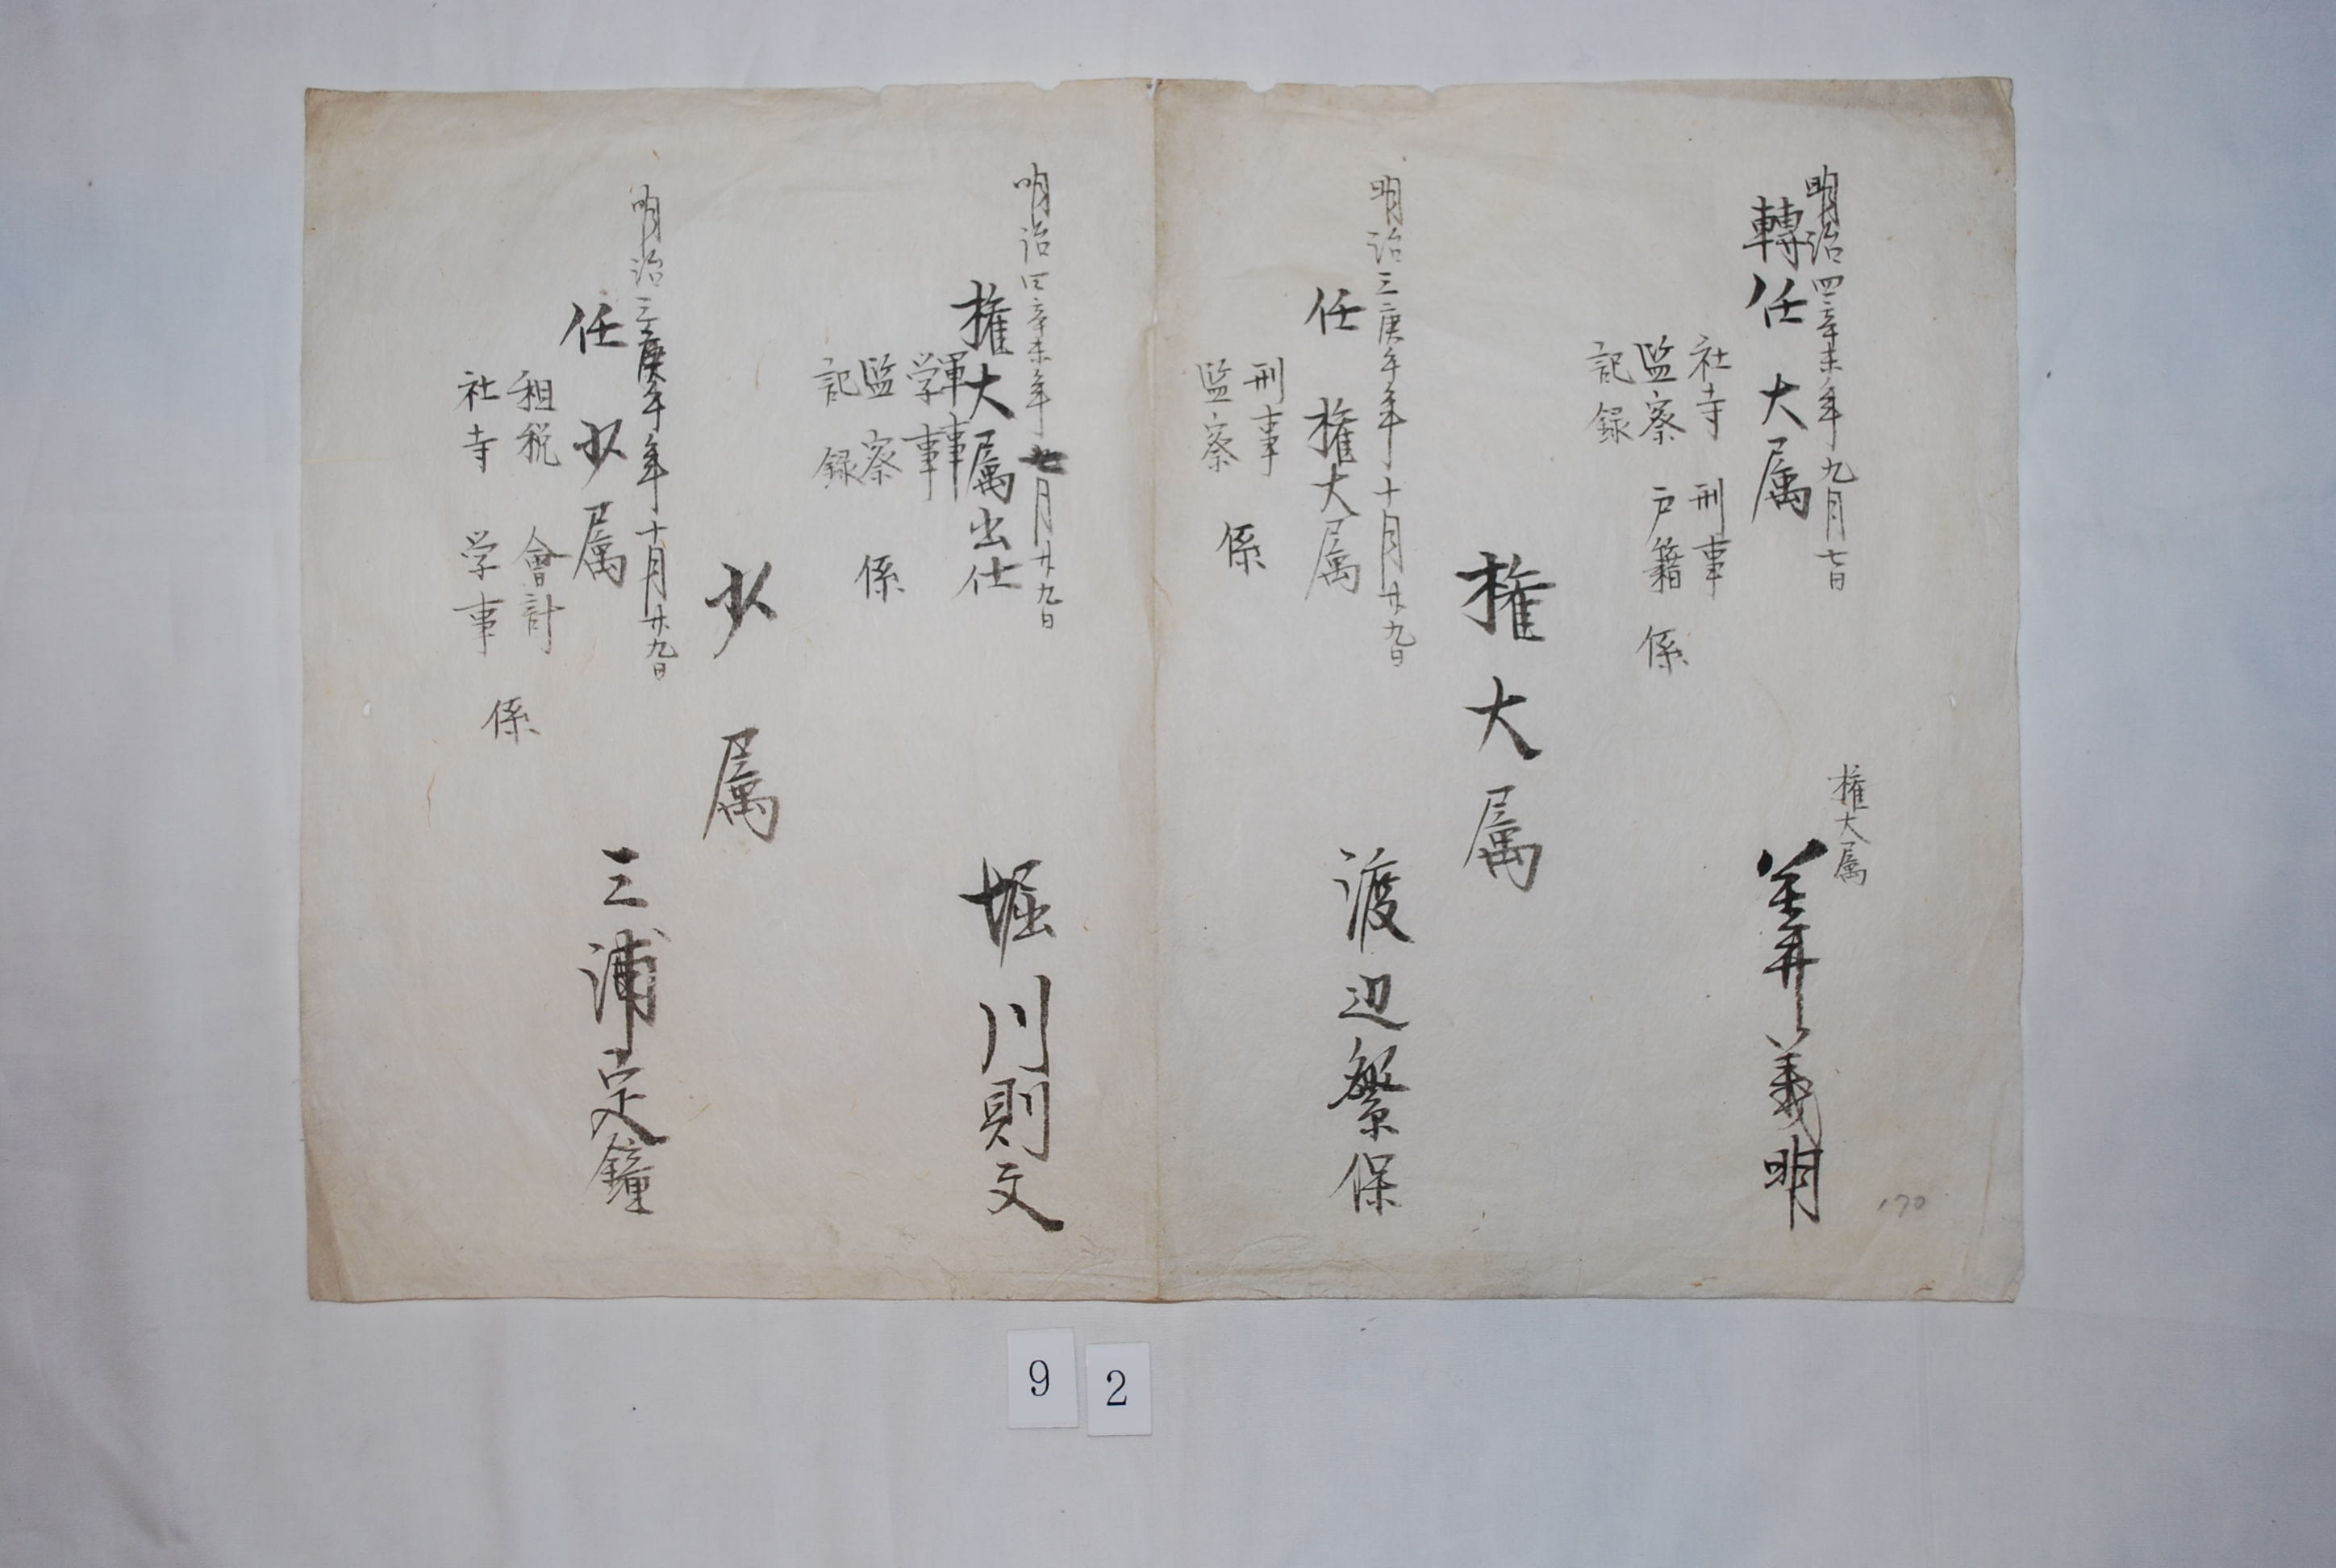 明治四辛未年九月七日
轉任大属
社寺 刑事
監察 戸籍 係
記録
権大属
義明
権大属
明治三庚午年十月廿九日
任 権大属
刑事
監察
係
渡辺繁保
明治四辛未年七月廿九日
権大属出仕
軍事
学事
監察
記録
係
堀川則文
少属
明治三庚午年十月廿九日
任 少属
租税 會計
社寺 学事
係
三浦定鐘
170
9 2